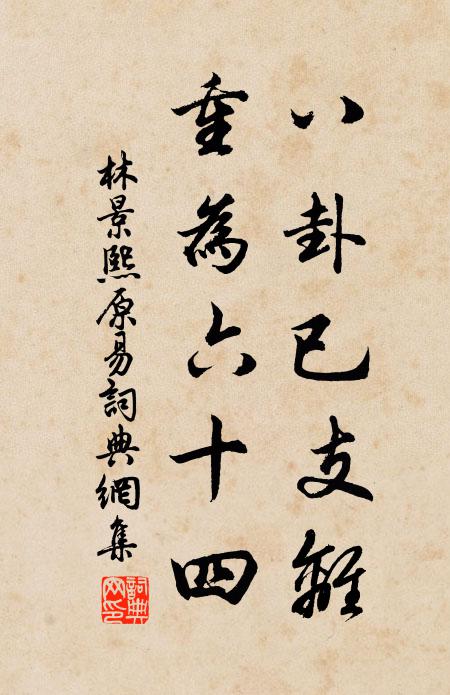 八卦已支離
重為六十四
林景熙原易詞典網集
詞典網印